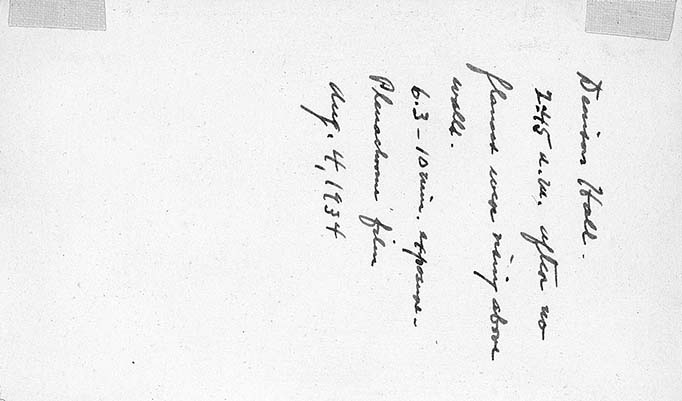 Denison Hall.
2:45 a.m. after no
flames were rising above
walls.
6.3 – 10 min. exposure.
Plenachrome film
Aug. 4, 1934